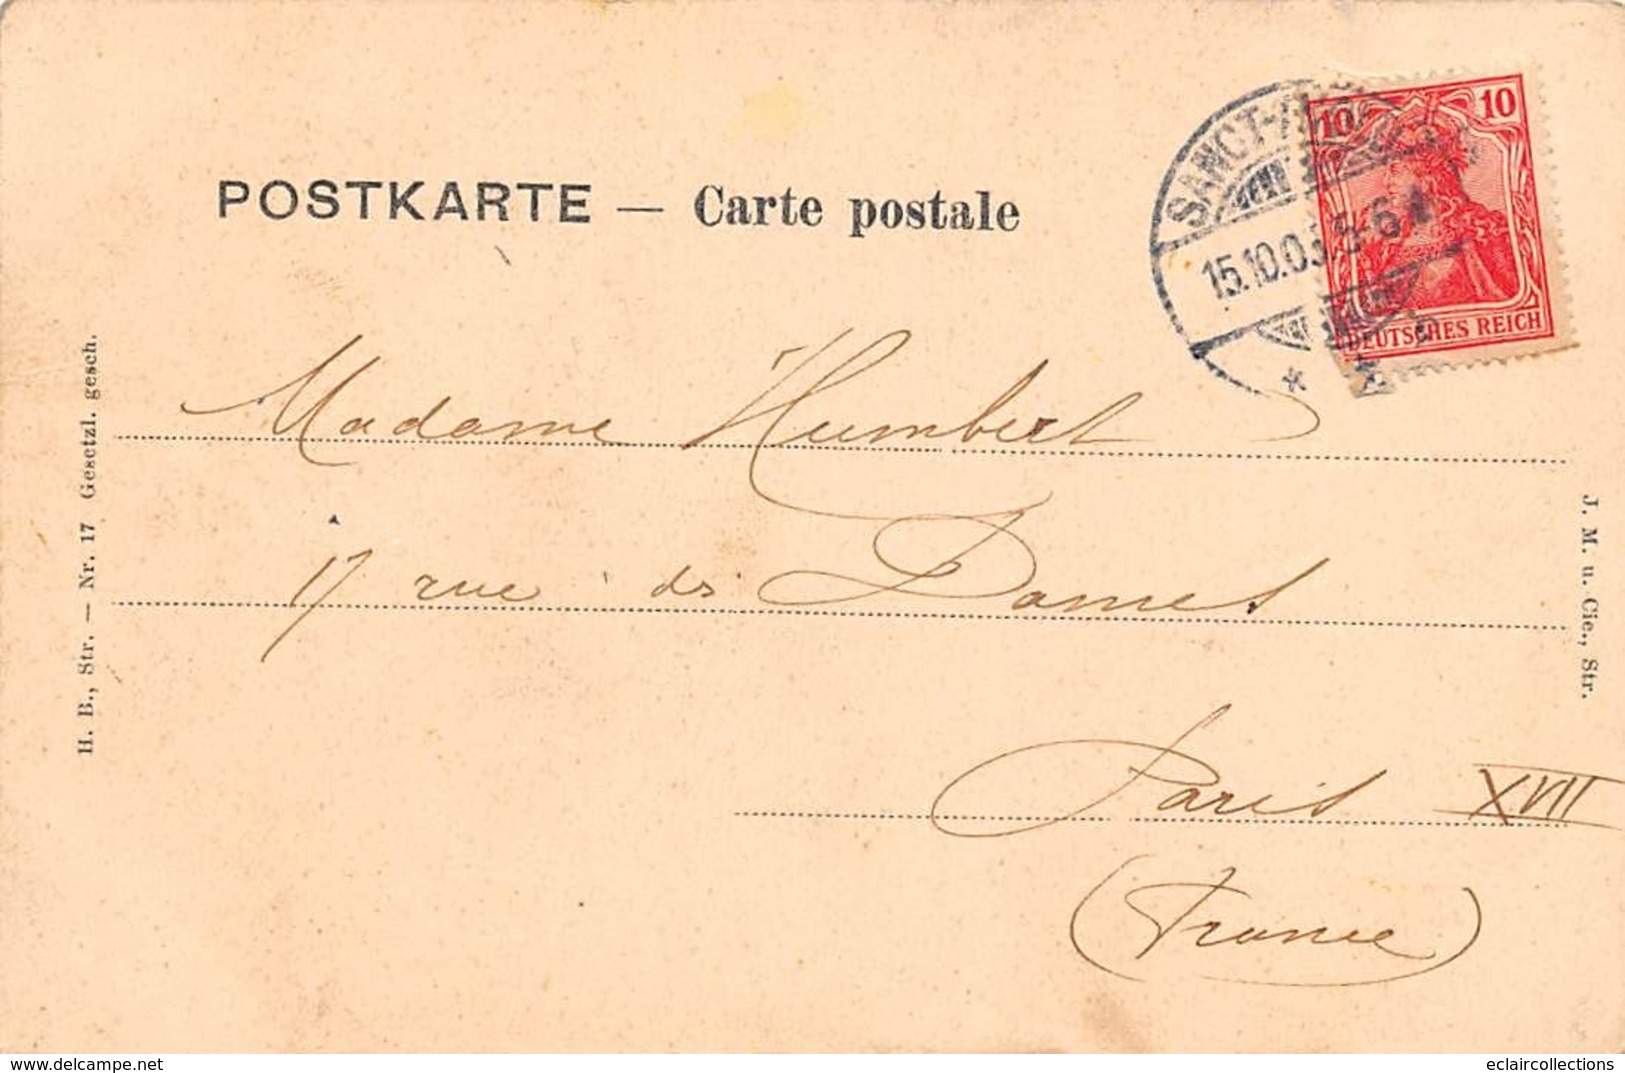 POSTKARTE — Carte postale
10 10
DEUTSCHES REICH
SANCT-
15.10.03. 5-6
Madame Humbert
17 rue des Dames
Paris XVII
(France)
H. B., Str. — Nr. 17 Gesetzl. gesch.
J. M. u. Cie., Str.
www.delcampe.net
eclaircollections